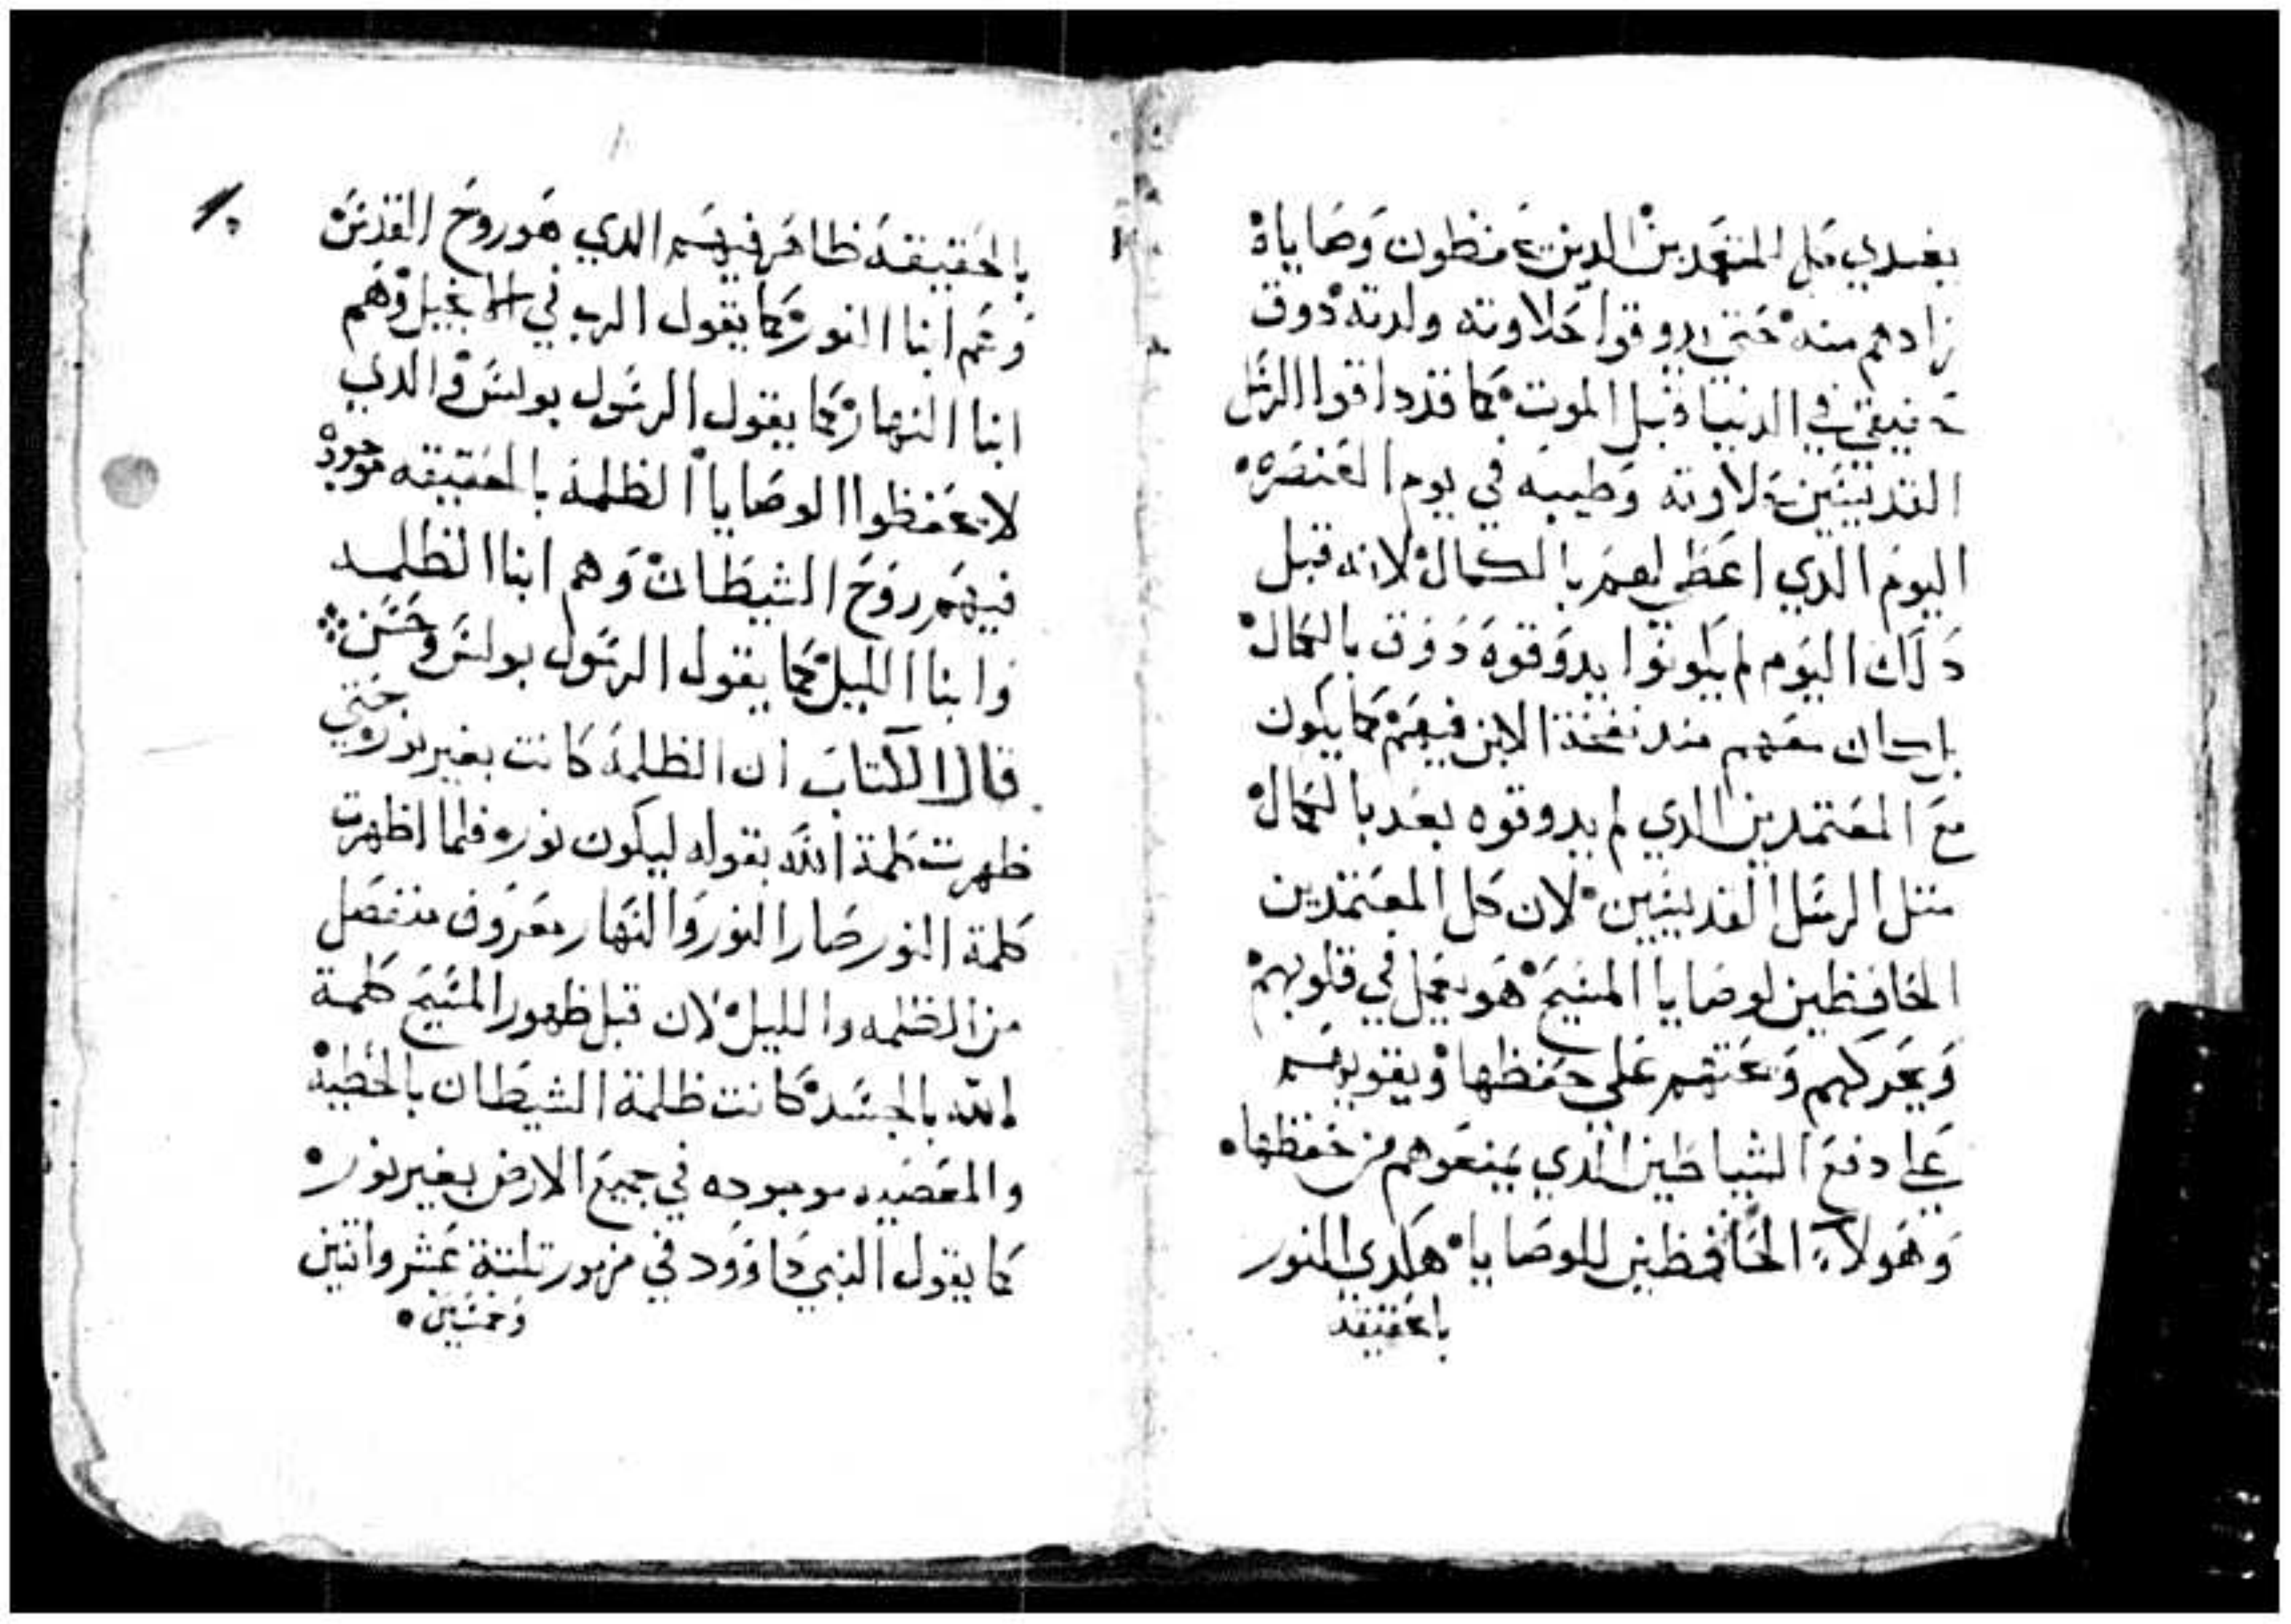 يغتدي مثل المتعمدين الدين يحفظون وصاياه
زادهم منه حتي يدوقوا حلاوته ولدته دوق
حقيقي في الدنيا قبل الموت كما قد داقوا الرسل
القديسين حلاوته وطيبه في يوم العنصره
اليوم الدي اعطي لهم بالكمال لانه قبل
دلك اليوم لم يكونوا يدوقوه دوق بالكمال
بل كان معهم مند نفخة الابن فيهم كما يكون
مع المعتمدين الدي لم يدوقوه بعد بالكمال
متل الرسل القديسين لان كل المعتمدين
الحافظين لوصايا المسيح هو يعمل في قلوبهم
ويحركهم ويحتهم علي حفظها ويقويهم
علي دفع الشياطين الدي يمنعوهم من حفظها
وهولاء الحافظين للوصايا هم لدي النور
بالحقيقة
بالحقيقة ظاهر فيهم الدي هو روح القدس
وهم ابنا النور كما يقول الرب في الانجيل وهم
ابنا النهار كما يقول الرسول بولس والدي
لا يحفظوا الوصايا الظلمة بالحقيقه موجود
فيهم روح الشيطان وهم ابنا الظلمه
وابنا الليل كما يقول الرسول بولس وحسن
قال الكتاب ان الظلمة كانت بغير نور حتي
ظهرت كلمة الله بقوله ليكون نور فلما اظهرت
كلمة النور صار النور والنهار معروف منفصل
من الظلمه والليل لان قبل ظهور المسيح كلمة
الله بالجسد كانت ظلمة الشيطان بالخطية
والمعصيه موجوده في جميع الارض بغير نور
كما يقول النبي داوود في مزمور تلتة عشر واتنين
وخمسين